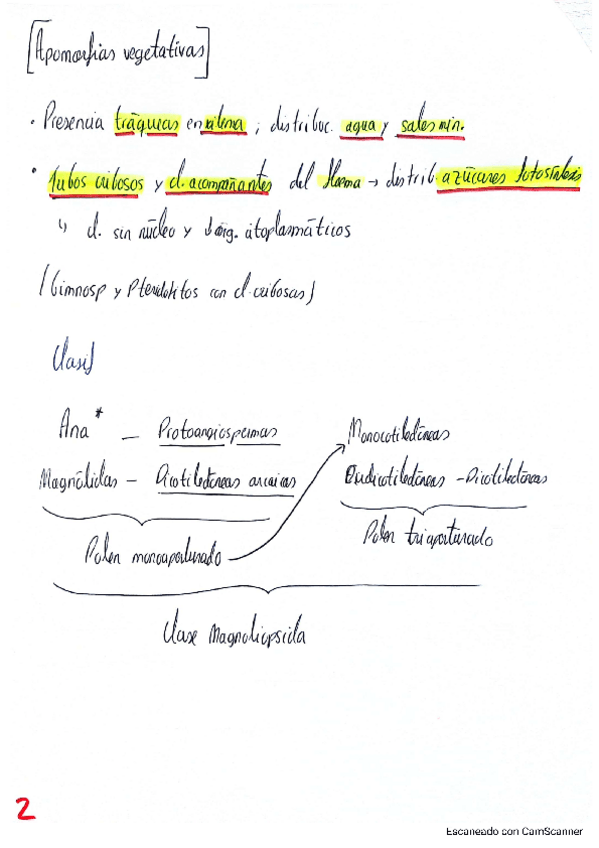 [Apomorfias vegetativas]
· Presencia tráqueas en xilema ; distribuc. agua y sales min.
· Tubos cribosos y cl. acompañantes del floema → distrib. azúcares fotosíntesis
↳ cl. sin núcleo y orig. citoplasmáticos
(Gimnosp y Pteridofitos con cl. cribosas)
Clasif
Ana* — Protoangiospermas
Monocotiledóneas
Magnólidas — Dicotiledóneas arcaicas
Eudicotiledóneas - Dicotiledóneas
Polen monoaperturado
Polen triaperturado
Clase Magnoliopsida
2
Escaneado con CamScanner